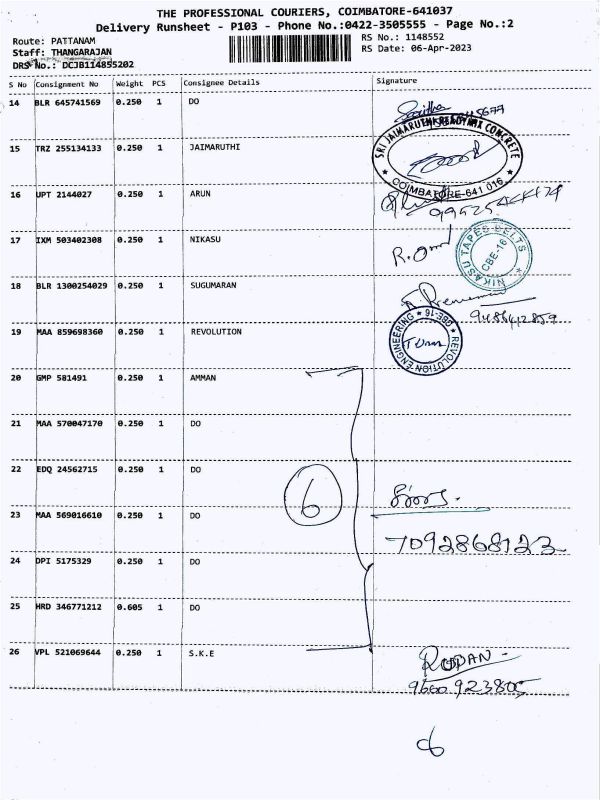 THE PROFESSIONAL COURIERS, COIMBATORE-641037
Delivery Runsheet - P103 - Phone No.:0422-3505555 - Page No.:2
Route: PATTANAM
RS No.: 1148552
Staff: THANGARAJAN
RS Date: 06-Apr-2023
DRS No.: DCJB114855202
S No Consignment No Weight PCS Consignee Details Signature
14 BLR 645741569 0.250 1 DO
15 TRZ 255134133 0.250 1 JAIMARUTHI
SRI JAIMARUTHI READYMIX CONCRETE
COIMBATORE-641 016
16 UPT 2144027 0.250 1 ARUN
17 IXM 503402308 0.250 1 NIKASU
R.
NIKASU TAPES BELTS
CBE-16
18 BLR 1300254029 0.250 1 SUGUMARAN
9488412859
19 MAA 859698360 0.250 1 REVOLUTION
REVOLUTION ENGINEERING
CBE-16
20 GMP 581491 0.250 1 AMMAN
21 MAA 570047170 0.250 1 DO
22 EDQ 24562715 0.250 1 DO
6
23 MAA 569016610 0.250 1 DO
7092868123
24 DPI 5175329 0.250 1 DO
25 HRD 346771212 0.605 1 DO
26 VPL 521069644 0.250 1 S.K.E
9600923805